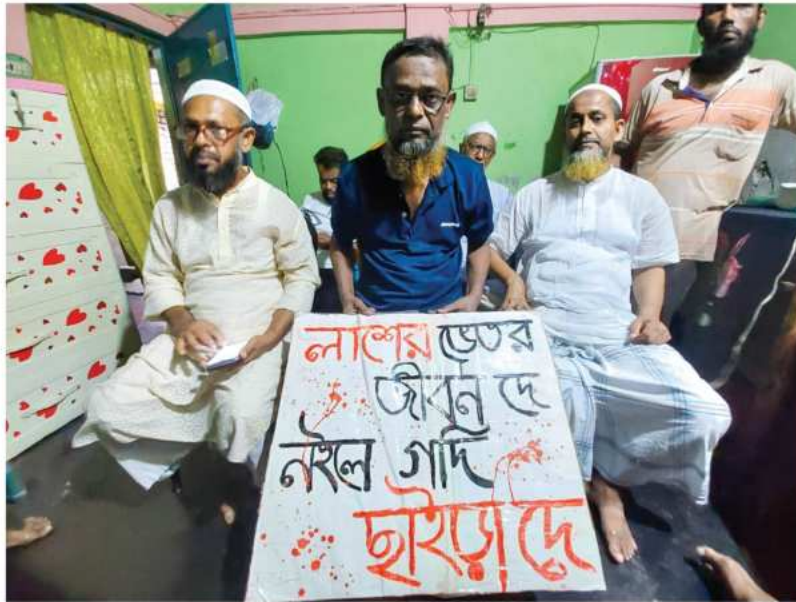 লাশের ভেতর
জীবন দে
নইলে গদি
ছাইড়া দে